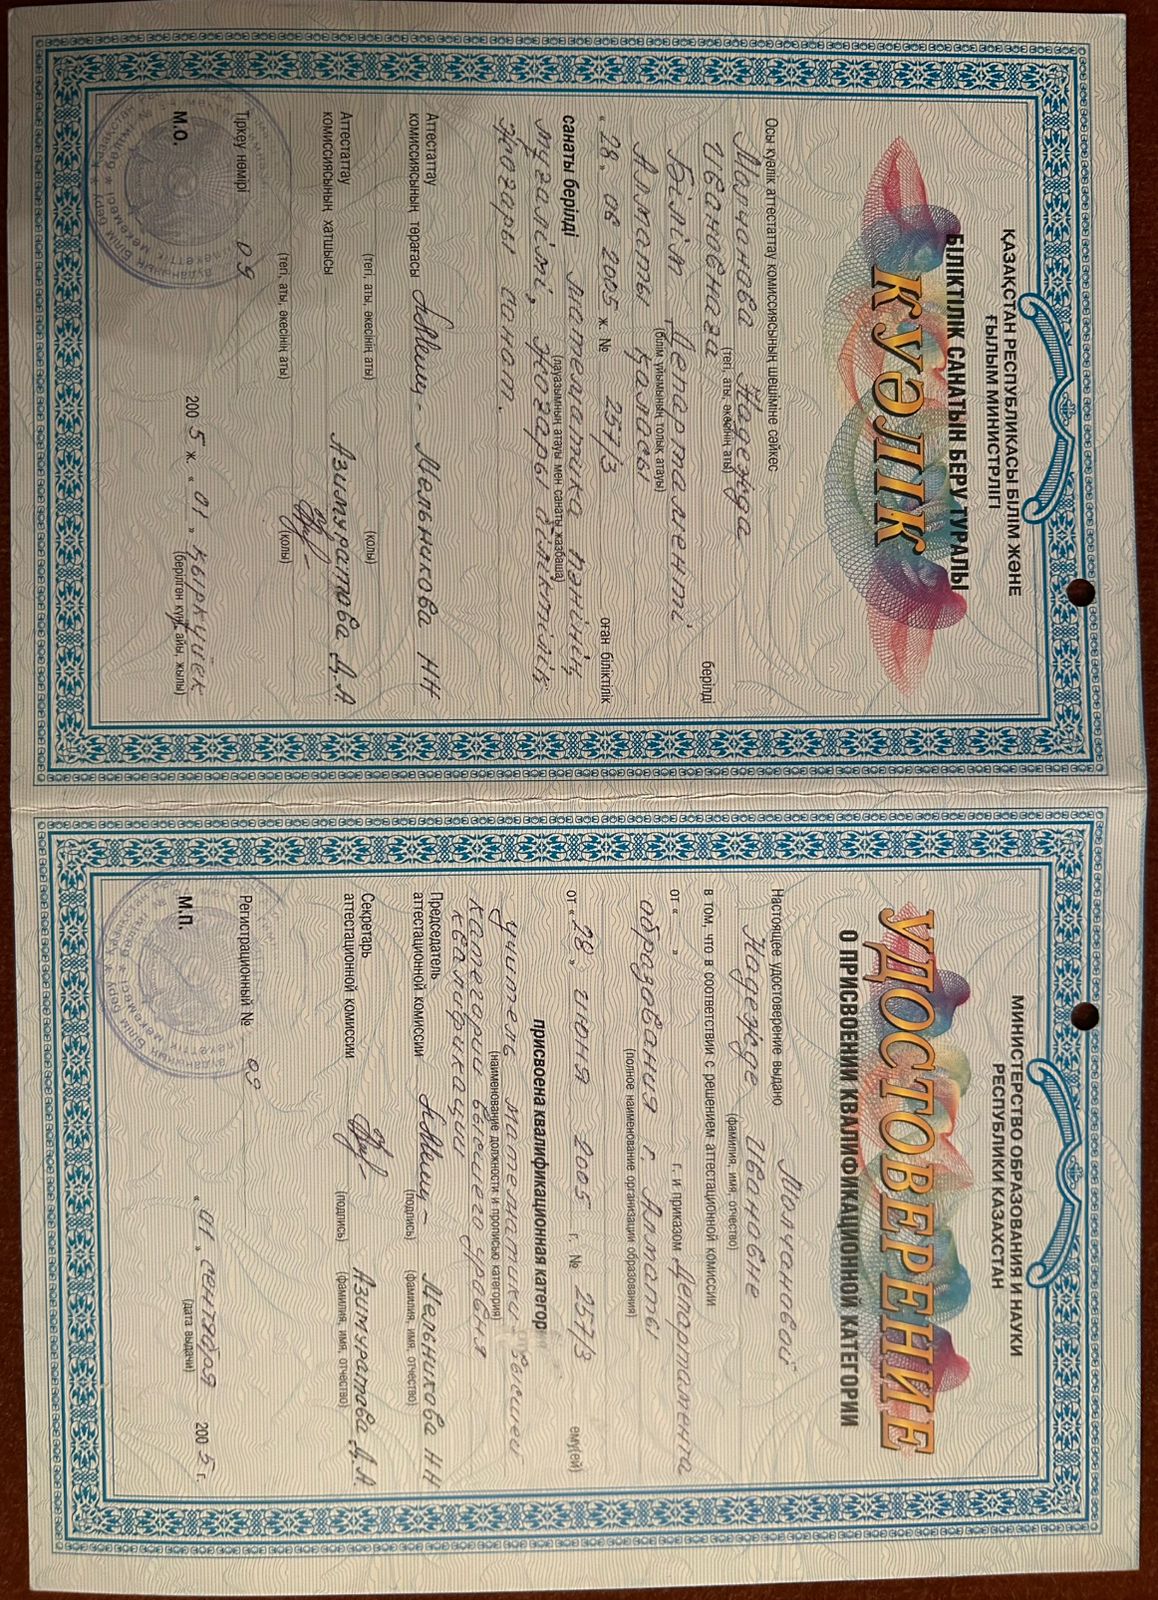 ҚАЗАҚСТАН РЕСПУБЛИКАСЫ БІЛІМ ЖӘНЕ
ҒЫЛЫМ МИНИСТРЛІГІ
БІЛІКТІЛІК САНАТЫН БЕРУ ТУРАЛЫ
КУӘЛІК
Осы куәлік аттестаттау комиссиясының шешіміне сәйкес
Молчанова Надежда
(тегі, аты, әкесінің аты)
Ивановнаға берілді
Білім Департаменті
(білім ұйымының толық атауы)
Алматы қаласы
" 28 " 06 2005 ж. № 257/3 оған біліктілік
санаты берілді математика пәнінің
(лауазымның атауы мен санаты жазбаша)
мұғалімі, жоғары біліктілік
жоғары санат.
Аттестаттау
комиссиясының төрағасы Мельникова НН
(тегі, аты, әкесінің аты) (қолы)
Аттестаттау
комиссиясының хатшысы Азимуратова А.А.
(тегі, аты, әкесінің аты) (қолы)
Тіркеу нөмірі 09
М.О.
200 5 ж. " 01 " қыркүйек
(берілген күні, айы, жылы)
МИНИСТЕРСТВО ОБРАЗОВАНИЯ И НАУКИ
РЕСПУБЛИКИ КАЗАХСТАН
УДОСТОВЕРЕНИЕ
О ПРИСВОЕНИИ КВАЛИФИКАЦИОННОЙ КАТЕГОРИИ
Настоящее удостоверение выдано Молчановой
Надежде Ивановне
(фамилия, имя, отчество)
в том, что в соответствии с решением аттестационной комиссии
от " " г. и приказом Департамента
образования г. Алматы
(полное наименование организации образования)
от " 28 " июня 2005 г. № 257/3 ему(ей)
присвоена квалификационная категори
учитель математики высшей
(наименование должности и прописью категория)
категории высшего уровня
квалификации
Председатель
аттестационной комиссии Мельникова НН
(подпись) (фамилия, имя, отчество)
Секретарь
аттестационной комиссии Азимуратова А.А.
(подпись) (фамилия, имя, отчество)
Регистрационный № 09
М.П.
" 01 " сентября 200 5 г.
(дата выдачи)